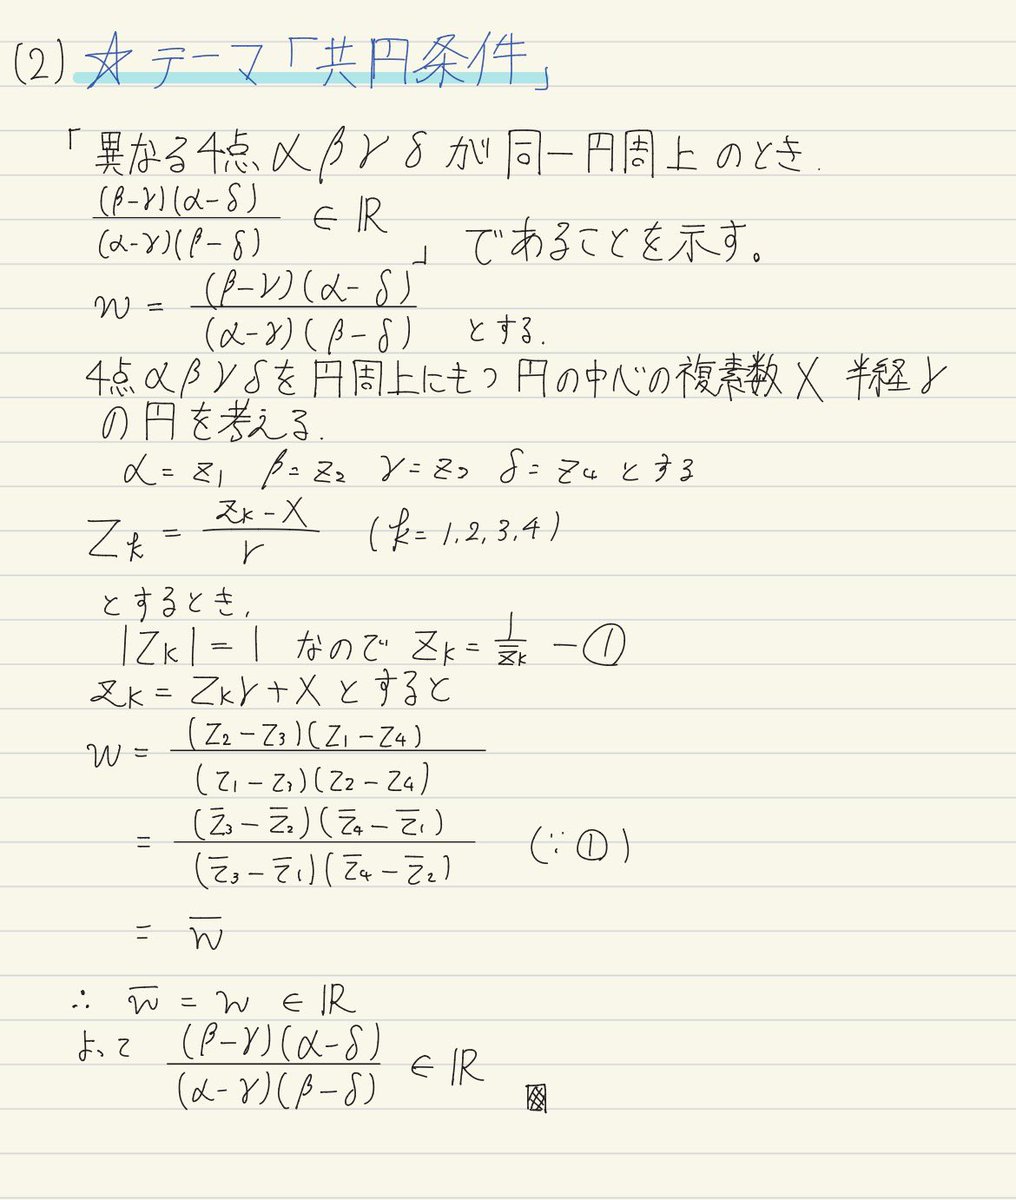 (2) ☆ テーマ「共円条件」
「異なる4点 α β γ δ が 同一円周上 のとき.
(β-γ)(α-δ) / (α-γ)(β-δ) ∈ ℝ 」であることを示す。
w = (β-γ)(α-δ) / (α-γ)(β-δ) とする.
4点 α β γ δ を 円周上にもつ 円の中心の複素数 X 半経 r
の円を考える.
α = z₁ β = z₂ γ = z₃ δ = z₄ とする
Z_k = (z_k - X) / r (k = 1, 2, 3, 4)
とするとき,
|Z_k| = 1 なので Z_k = 1 / z̄_k - ①
z_k = Z_k r + X とすると
w = (Z₂ - Z₃)(Z₁ - Z₄) / (Z₁ - Z₃)(Z₂ - Z₄)
= (Z̄₃ - Z̄₂)(Z̄₄ - Z̄₁) / (Z̄₃ - Z̄₁)(Z̄₄ - Z̄₂) (∵ ①)
= w̄
∴ w̄ = w ∈ ℝ
よって (β-γ)(α-δ) / (α-γ)(β-δ) ∈ ℝ